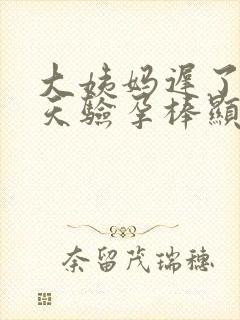 大姨妈迟了
天驗孕棒顯
奈留茂瑞穗